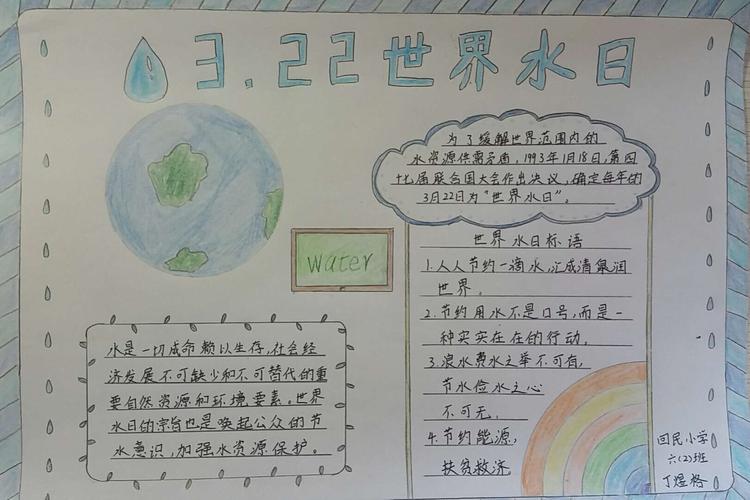 3.22世界水日
为了缓解世界范围内的
水资源供需矛盾,1993年1月18日,第四
十七届联合国大会作出决议,确定每年的
3月22日为“世界水日”。
water
世界水日标语
1.人人节约一滴水,汇成清泉润
世界。
2.节约用水不是口号,而是一
种实实在在的行动。
3.浪水费水之举不可有,
节水俭水之心
不可无。
4.节约能源,
扶贫救济
水是一切成命赖以生存,社会经
济发展不可缺少和不可替代的重
要自然资源和环境要素。世界
水日的宗旨也是唤起公众的节
水意识,加强水资源保护。
回民小学
六(2)班
丁煜